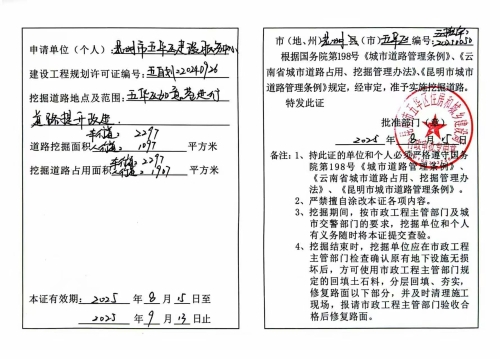 申请单位（个人）：昆明市五华区建设投资中心
建设工程规划许可证编号：五自制:20240926
挖掘道路地点及范围：五华区如意巷进行
道路提升改造
车行道：2297
道路挖掘面积 人行道：1097 平方米
车行道：2297
挖掘道路占用面积 人行道：1907 平方米
本证有效期：2025 年 8 月 15 日至
2025 年 9 月 13 日止
市（地、州）昆明 县（市）五华区 编号：20250050
根据国务院第198号《城市道路管理条例》、《云
南省城市道路占用、挖掘管理办法》、《昆明市城
市道路管理条例》规定，经审定，准予实施挖掘道路。
特发此证
批准部门
2025 年 8 月 15 日
备注：1、持此证的单位和个人必须严格遵守国务
院第198号《城市道路管理条例》、《云
南省城市道路占用、挖掘管理办
法》、《昆明市城市道路管理条例》。
2、严禁擅自涂改本证各项内容。
3、挖掘期间，按市政工程主管部门及城
市交警部门的要求，挖掘单位和个人
有义务随时将本证提交查验。
4、挖掘结束时，挖掘单位应在市政工程
主管部门检查确认原有地下设施无损
坏后，方可使用市政工程主管部门规
定的回填土石料，分层回填、夯实，
修复路面以下部分，并及时清理施工
现场，报请市政工程主管部门验收合
格后修复路面。